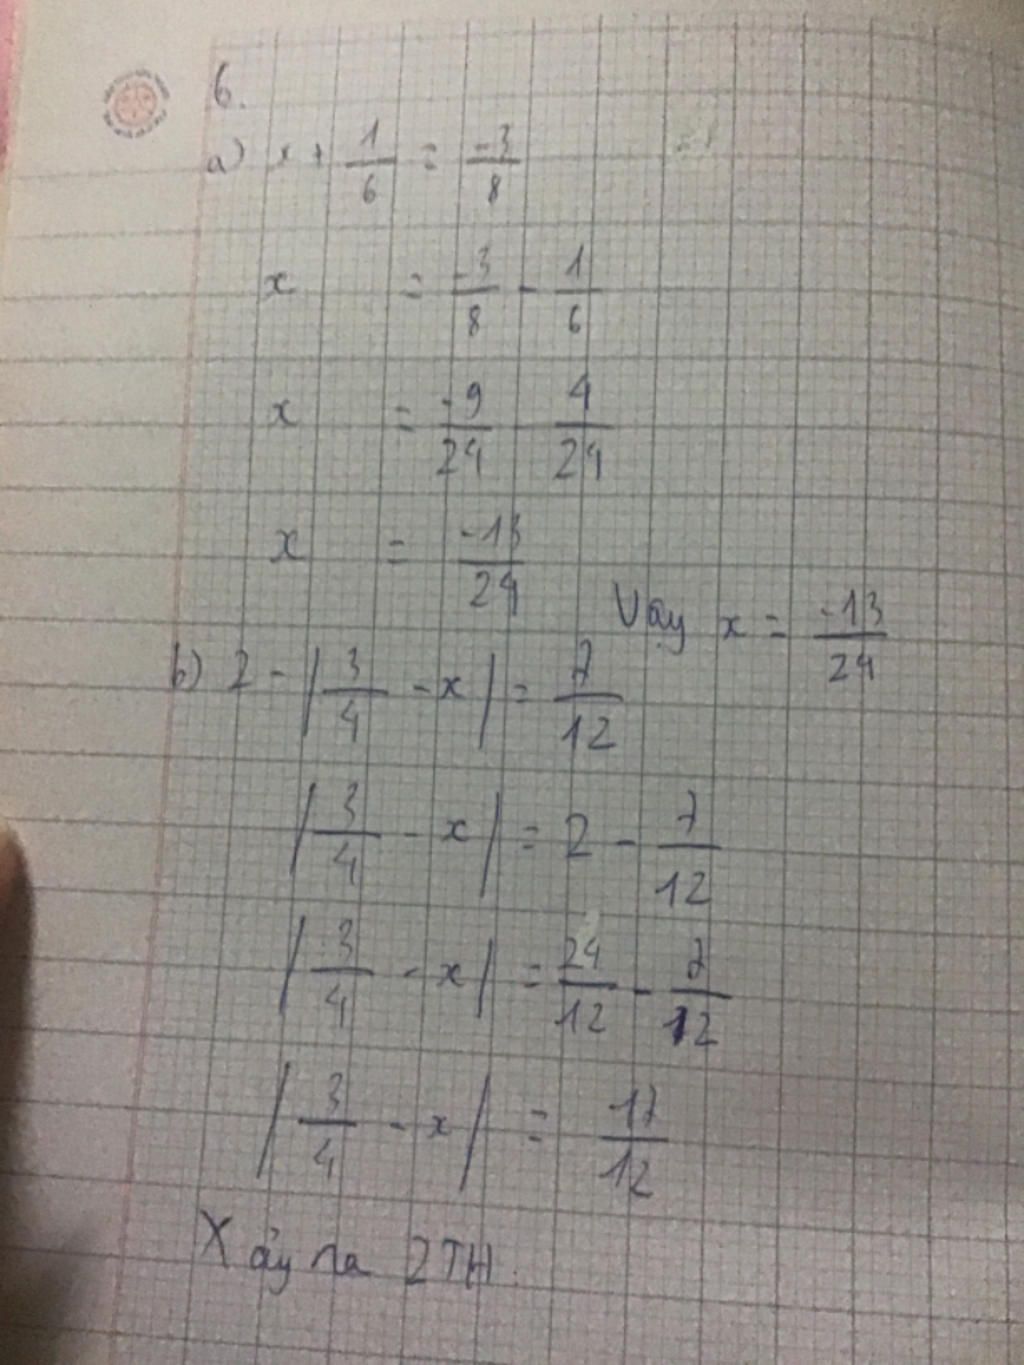 6.
a) x + 1/6 = -3/8
x = -3/8 - 1/6
x = -9/24 - 4/24
x = -13/24
Vậy x = -13/24
b) 2 - |3/4 - x| = 7/12
|3/4 - x| = 2 - 7/12
|3/4 - x| = 24/12 - 7/12
|3/4 - x| = 17/12
Xảy ra 2TH.